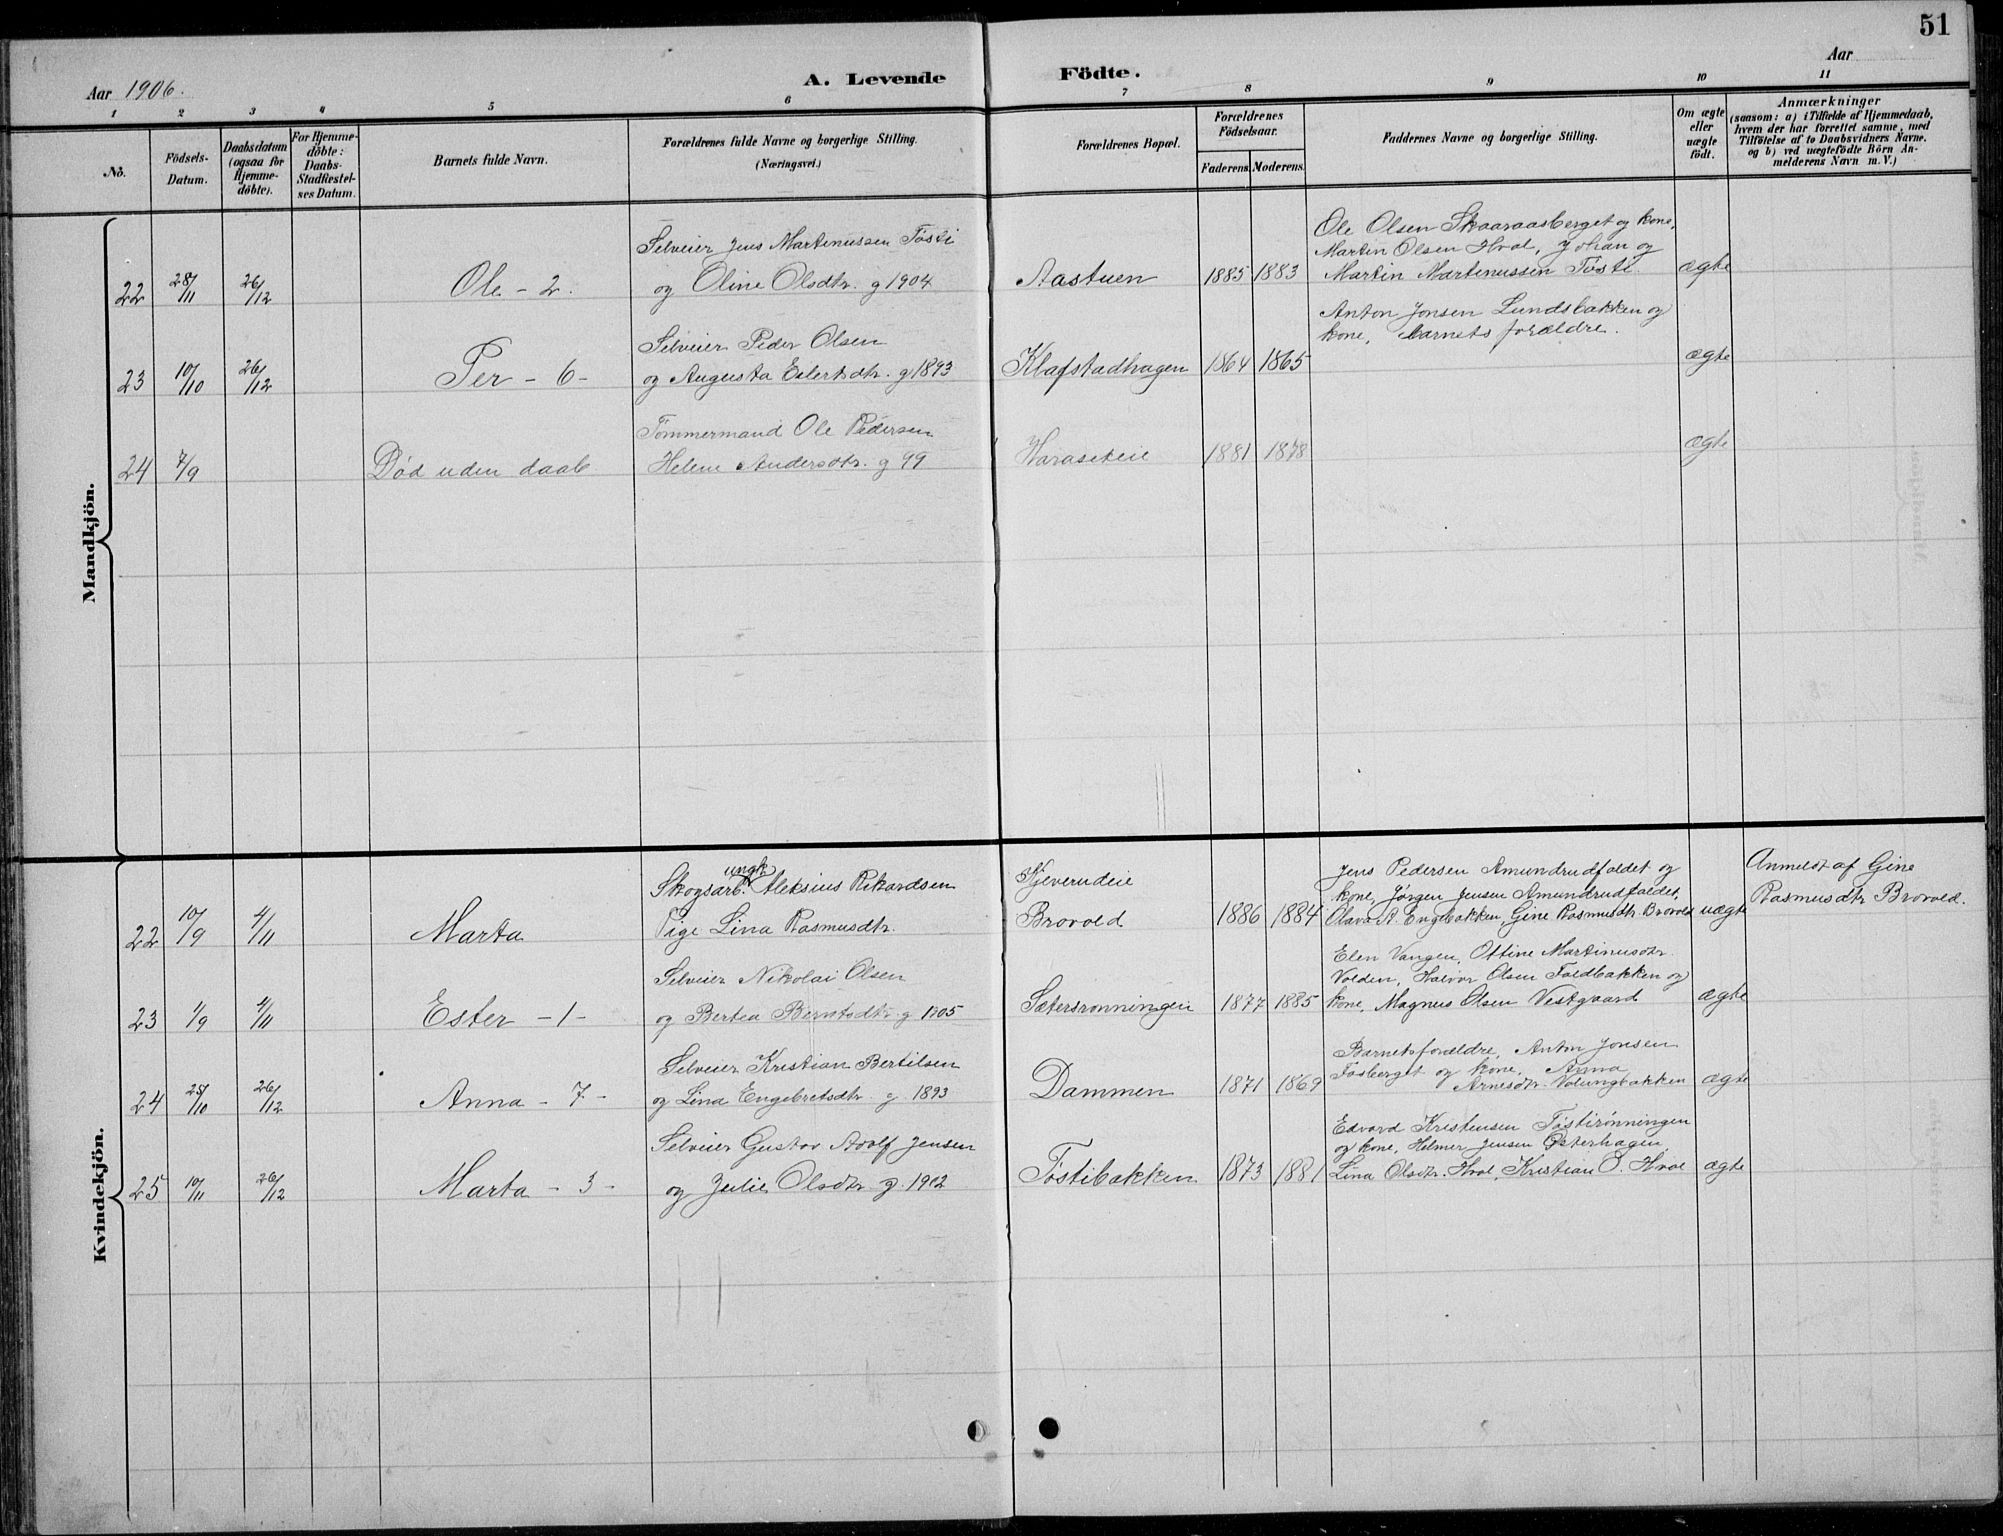 51
Aar 1906.
A. Levende Födte.
Aar
1 2 3 4 5 6 7 8 9 10 11
No.
Födsels-Datum.
Daabsdatum (ogsaa for Hjemme-döbte).
For Hjemme-döbte: Daabs-Stadfæstel-ses Datum.
Barnets fulde Navn.
Forældrenes fulde Navne og borgerlige Stilling. (Næringsvei.)
Forældrenes Bopæl.
Forældrenes Födselsaar.
Faderens. Moderens.
Faddernes Navne og borgerlige Stilling.
Om ægte eller uægte födt.
Anmærkninger
(saasom: a) i Tilfælde af Hjemmedaab, hvem der har forrettet samme, med Tilföielse af to Daabsvidners Navne. og b) ved uægtefödte Börn An-melderens Navn m. V.)
Mandkjön.
Selveier Jens Martinussen Tøsti
22 28/11 26/12 Ole - 2. og Oline Olsdtr. g 1904 Aastuen 1885 1883
Ole Olsen Skaaraasberget og kone,
Martin Olsen Hvol, Johan og
Martin Martinussen Tøsti. ægte
Selveier Peder Olsen
23 10/10 26/12 Per - 6 - og Augusta Eilertsdtr. g 1893 Klafstadhagen 1864 1865
Anton Jonsen Lundsbakken og
kone, barnets forældre. ægte
Tømmermand Ole Pedersen
24 7/9 Død uden daab Helene Andersdtr. g 99 1881 1878 ægte
Kvindekjön.
Skogsarb. ungk. Aleksius Rikardsen Kjeverudeie
22 10/9 4/11 Marta Pige Lina Rasmusdtr. Brovold 1886 1884
Jens Pedersen Amundrudfaldet og
kone, Jørgen Jensen Amundrudfaldet,
Olava R. Engebakken, Gine Rasmusdtr. Brovold uægte
Anmeldt af Gine
Rasmusdtr Brovold.
Selveier Nikolai Olsen
23 1/9 4/11 Ester - 1 - og Bertea Berntsdtr. g 1905 Sætersrønningen 1877 1885
Elen Vangen, Ottine Martinusdtr.
Volden, Halvor Olsen Foldbakken og
kone, Magnus Olsen Vestgaard ægte
Selveier Kristian Bertilsen
24 25/10 26/12 Anna - 7 - og Lina Engebretsdtr. g 1893 Dammen 1871 1869
Barnets forældre, Anton Jonsen
Fosberget og kone, Anna
Arnesdtr. Volungbakken ægte
Selveier Gustav Adolf Jensen
25 10/11 26/12 Marta - 3 - og Julie Olsdtr g. 1902 Tøstibakken 1873 1881
Edvard Kristensen Tøstirønningen
og kone, Helmer Jensen Østerhagen,
Lina Olsdtr. Hvol, Kristian O. Hvol ægte